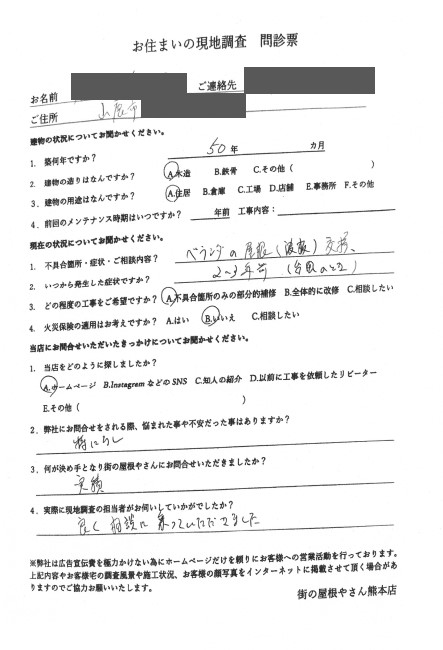 お住まいの現地調査 問診票
お名前 ご連絡先
ご住所 山鹿市
建物の状況についてお聞かせください。
1. 築何年ですか? 50年 カ月
2. 建物の造りはなんですか? A.木造 B.鉄骨 C.その他( )
3. 建物の用途はなんですか? A.住居 B.倉庫 C.工場 D.店舗 E.事務所 F.その他
4. 前回のメンテナンス時期はいつですか? 年前 工事内容:
現在の状況についてお聞かせください。
1. 不具合箇所・症状・ご相談内容? ベランダの屋根(波板)交換、
2. いつから発生した症状ですか? 2〜3年前(台風のとき)
3. どの程度の工事をご希望ですか? A.不具合箇所のみの部分的補修 B.全体的に改修 C.相談したい
4. 火災保険の適用はお考えですか? A.はい B.いいえ C.相談したい
当店にお問合せいただいたきっかけについてお聞かせください。
1. 当店をどのように探しましたか?
A.ホームページ B.Instagram などの SNS C.知人の紹介 D.以前に工事を依頼したリピーター
E.その他( )
2. 弊社にお問合せをされる際、悩まれた事や不安だった事はありますか?
特になし
3. 何が決め手となり街の屋根やさんにお問合せいただきましたか?
実績
4. 実際に現地調査の担当者がお伺いしていかがでしたか?
良く相談に乗っていただきました
※弊社は広告宣伝費を極力かけない為にホームページだけを頼りにお客様への営業活動を行っております。
上記内容やお客様宅の調査風景や施工状況、お客様の顔写真をインターネットに掲載させて頂く場合があ
りますのでご協力お願いいたします。
街の屋根やさん熊本店